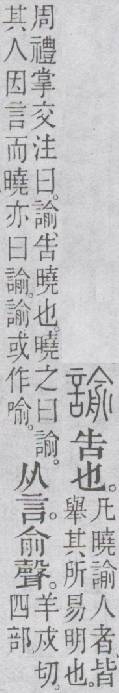 諭 吿也。凡曉諭人者、皆
舉其所易明也。
周禮掌交注曰。諭、吿曉也。曉之曰諭。
其人因言而曉亦曰諭。諭或作喻。
从言。俞聲。羊戍切。
四部